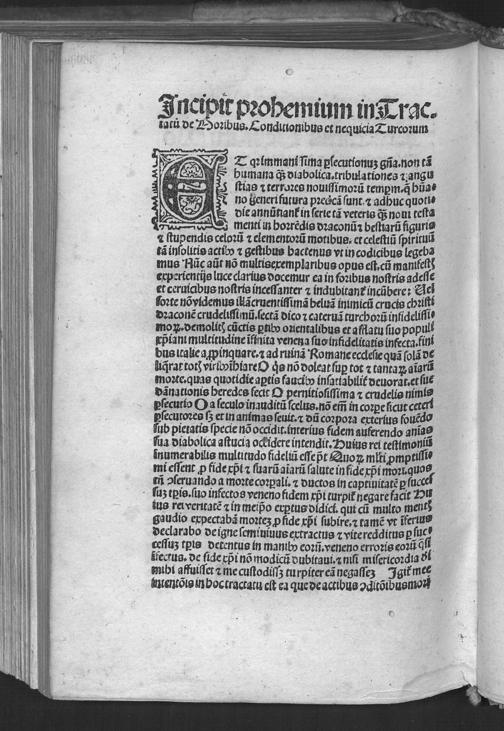 Incipit prohemium in Trac-
tatū de Moribus. Conditionibus et nequicia Turcorum
ET qr immani sima ꝑsecutionuz gñta. non tā
humana q̄ȝ diabolica. tribulationes ⁊ angu
stias ⁊ terrores nouissimorū tempꝝ. q̄ hūa-
no generi futura predēta sunt. ⁊ adhuc quoti-
die annūtiant̄ in serie tā veteris q̄ȝ noui testa
menti in horrēdis draconū ⁊ bestiarū figuris
⁊ stupendis celorū ⁊ elementorū motibus. et celestiū spirituū
tā insolitis actibȝ ⁊ gestibus hactenus vt in codicibus legeba
mus Nūc aūt nō multis exemplaribus opus est. cū manifestȝ
experientijs luce clarius docemur ea in foribus nostris adesse
et ceruicibus nostris incessanter ⁊ indubitant̄ incūbere: Uel
forte nō videmus illā cruentissimā beluā inimicū crucis christi
draconē crudelissimū. sectā dico ⁊ cateruā turchorū infidelissi-
moꝝ. demolitȝ cūctis ꝑtibȝ orientalibus et afflatu suo populi
xp̄iani multitudine īfinita venena suo infidelitatis infecta. fini
bus italie apꝓpinquare. ⁊ ad ruinā Romane ecclesie quā solā de
liq̄rat totȝ viribȝ īhiare O q̇s nō doleat suꝑ tot ⁊ tantaꝝ aīarū
morte. quas quotidie aꝑtis faucibȝ insatiabilit̄ deuorat. et sue
dānationis heredes fecit O pernitiosissima ⁊ crudelis nimis
ꝑsecutio O a seculo inauditū scelus. nō em̄ in corpe sicut ceteri
ꝑsecutores sȝ et in animas seuit. ⁊ dū corpora exterius fouēdo
sub pietatis specie nō occidit. interius fidem auferendo anīas
sua diabolica astucia occidere intendit. Huius rei testimoniū
innumerabilis multitudo fideliū esse pt̄ Quoꝝ ml̄ti ꝓmptissi-
mi essent ꝓ fide xp̄i ⁊ suarū aīarū salute in fide xp̄i mori. quos
tn̄ ꝯseruando a morte corꝑali. ⁊ ductos in captiuitatē ꝑ succes
suz tp̄is. suo infectos veneno fidem xp̄i turpit̄ negare facit Hu
ius rei veritatē ⁊ in meip̄o exꝑtus didici. qui cū multo mentȝ
gaudio expectabā mortez ꝓ fide xp̄i subire. ⁊ tamē vt īferius
declarabo de igne semiuiuus extractus ⁊ vite redditus ꝑ suc-
cessuz tp̄is detentus in manibȝ eorū. veneno erroris eorū q̄si
īfectus. de fide xp̄i nō modicū dubitaui. ⁊ nisi misericordia di
mihi affuisset ⁊ me custodissz turpiter eā negassez Igit̄ mee
intentōis in hoc tractatu est ea que de actibus ꝯditōibus mori